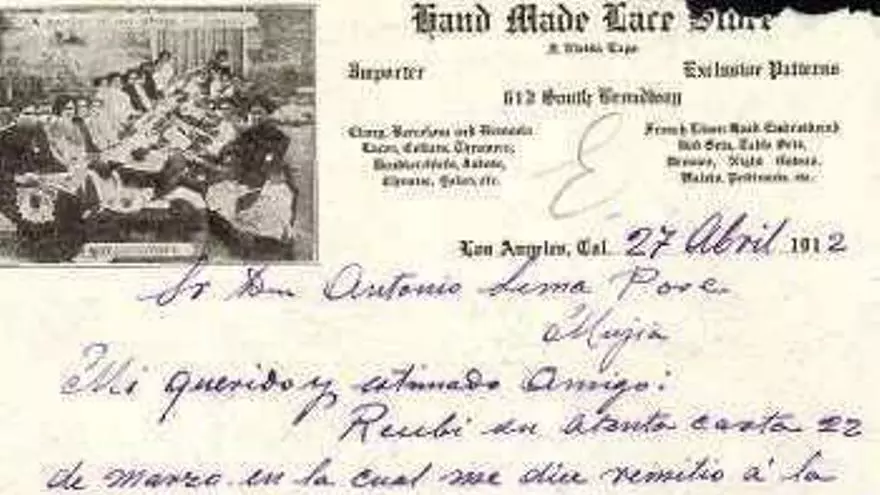 Hand Made Lace Store
Importer
Exclusive Patterns
613 South Broadway
Cluny, Barcelona and
Laces, Collars,
Handkerchiefs, Jabots,
etc.
French Linen Hand Embroidered
Bed Sets, Table Sets,
Night
etc.
E.
Los Angeles, Cal. 27 Abril 1912
Sr Dn Antonio Lema Pose
Mujia
Mi querido y estimado Amigo:
Recibi su atenta carta 22
de marzo en la cual me dice remitio á la